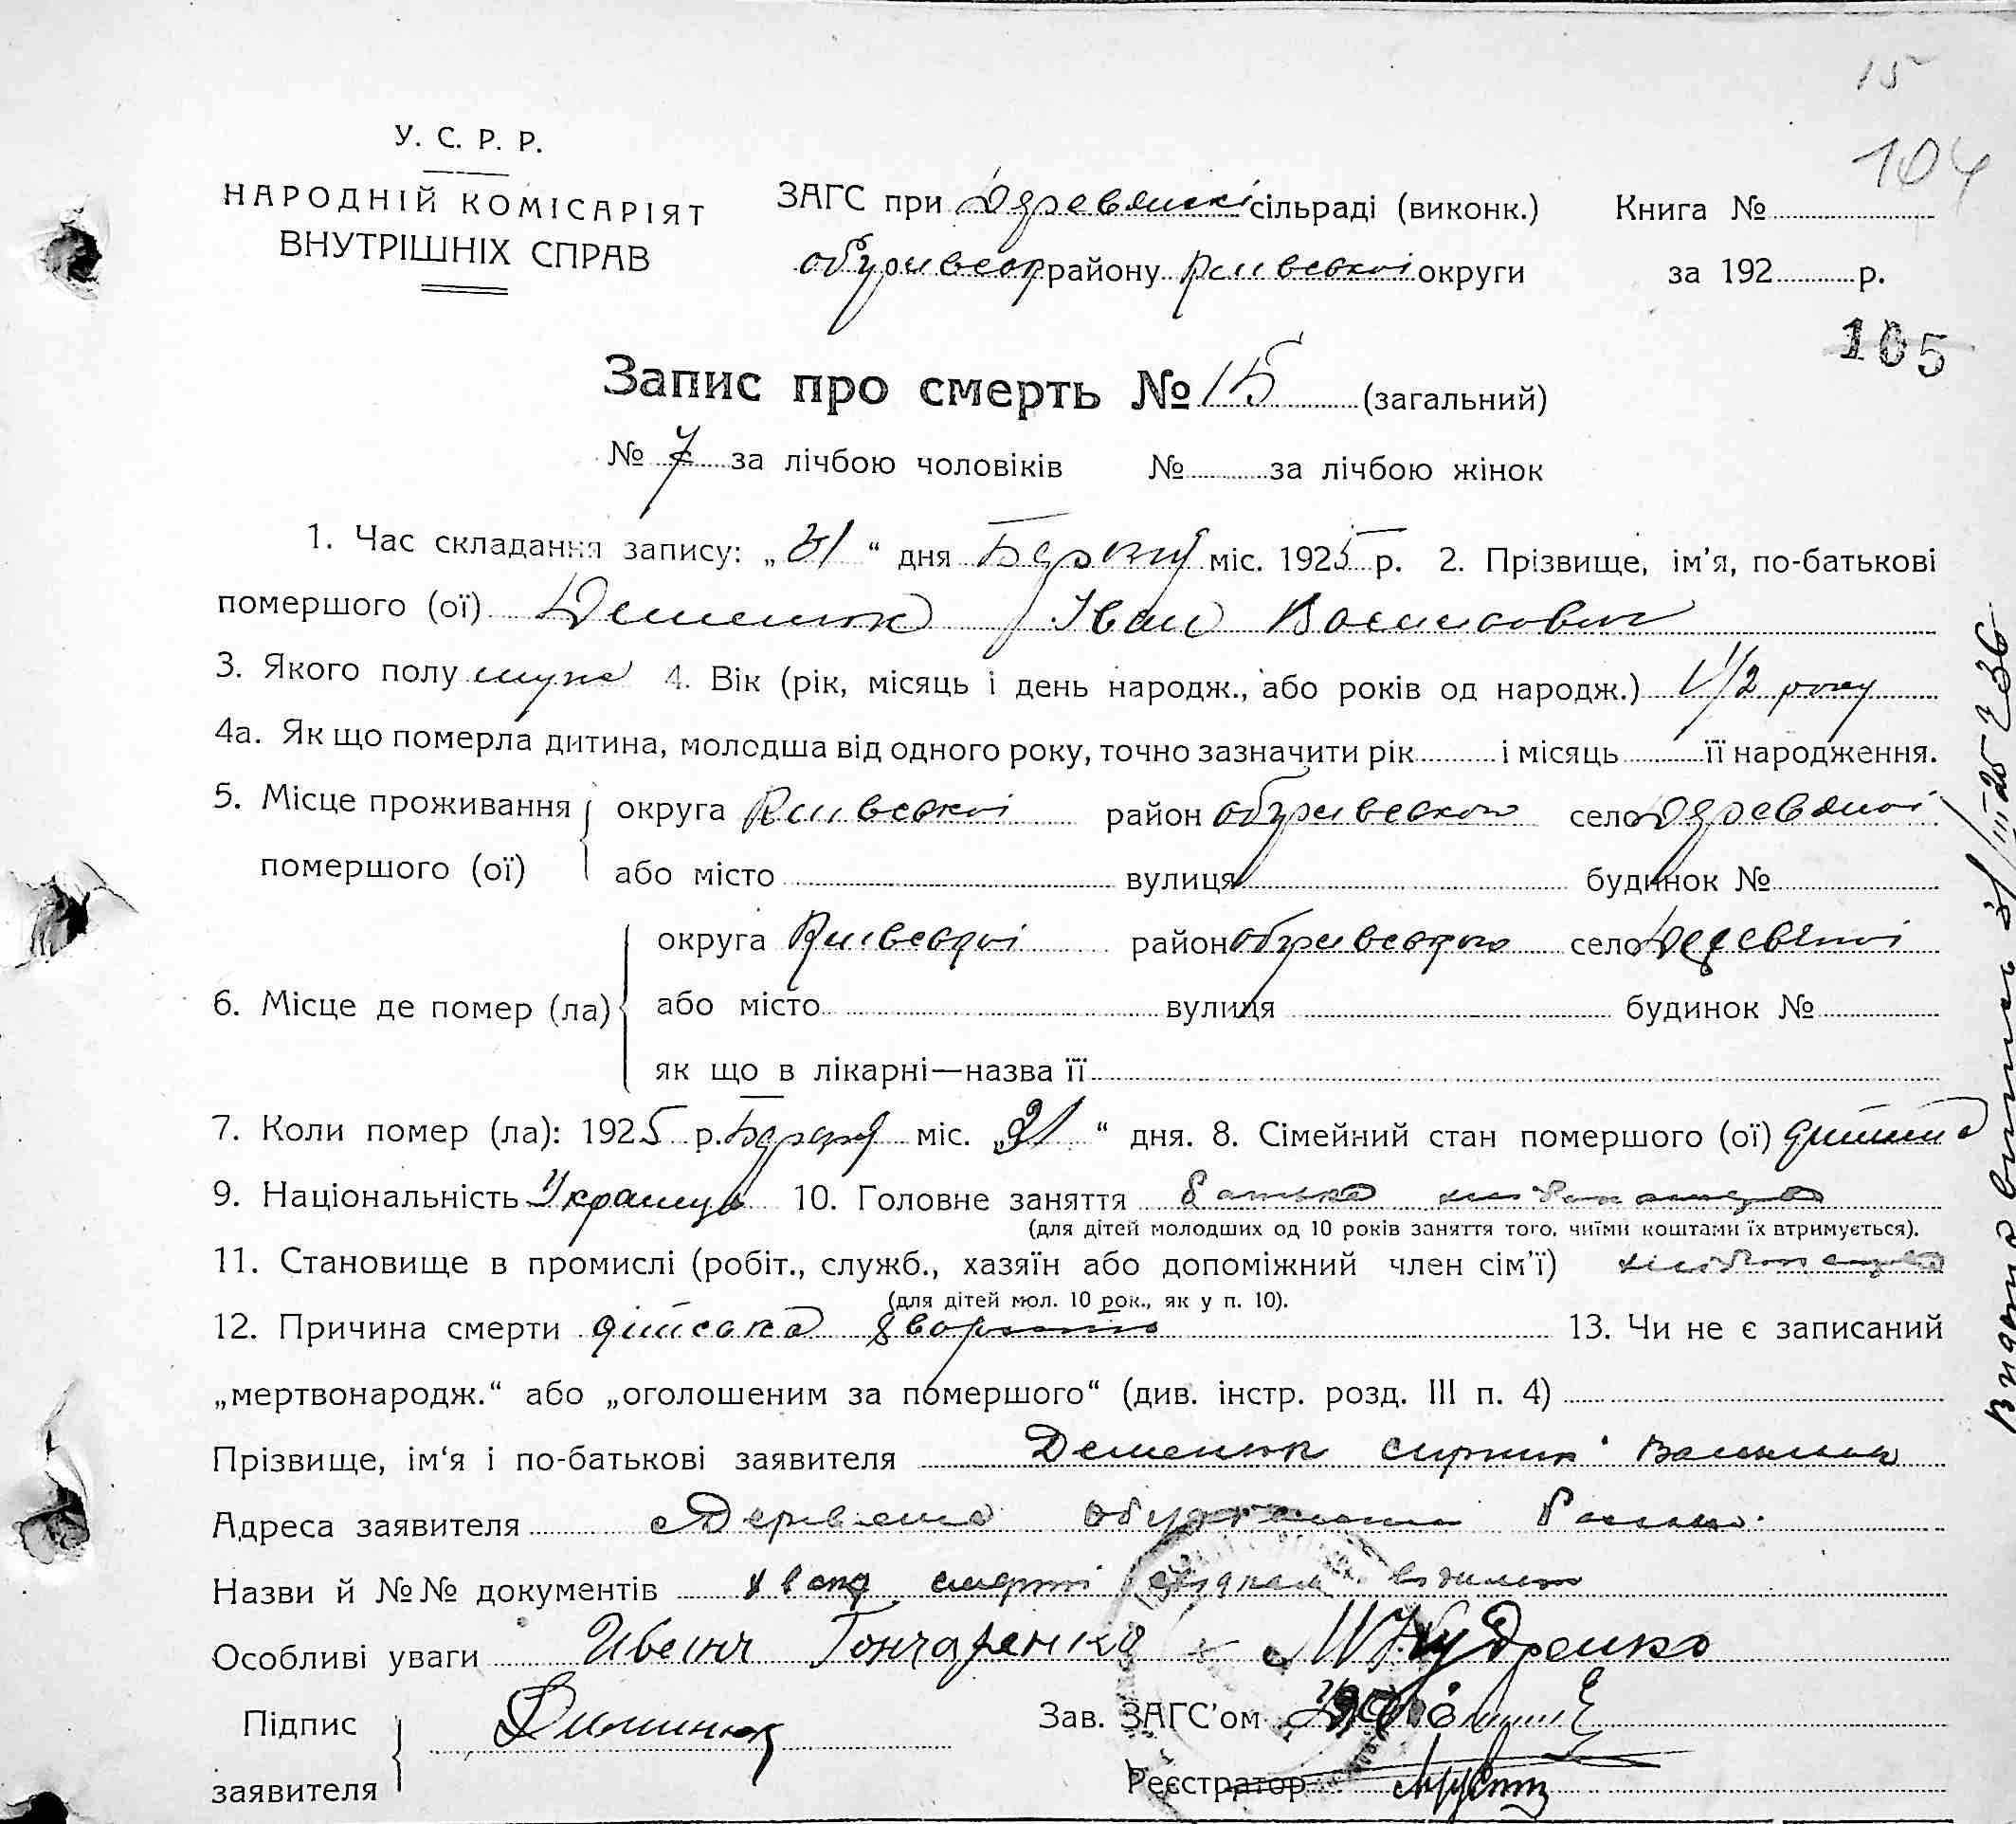 15
104
У. С. Р. Р.
НАРОДНІЙ КОМІСАРІЯТ
ВНУТРІШНІХ СПРАВ
ЗАГС при Деревянські сільраді (виконк.)
Книга №
району Київської округи
за 192 р.
105
Запис про смерть № 15 (загальний)
№ 7 за лічбою чоловіків № за лічбою жінок
1. Час складання запису: „31“ дня міс. 1925 р. 2. Прізвище, ім’я, по-батькові
помершого (ої) Деменюк Іван Васильович
3. Якого полу муж 4. Вік (рік, місяць і день народж., або років од народж.) 1/2 року
4а. Як що померла дитина, молодша від одного року, точно зазначити рік і місяць її народження.
5. Місце проживання округа Київської район обухівського село Деревяної
помершого (ої) або місто вулиця будинок №
округа Київської район обухівського село Деревяної
6. Місце де помер (ла) або місто вулиця будинок №
як що в лікарні—назва її
7. Коли помер (ла): 1925 р. міс. „31“ дня. 8. Сімейний стан помершого (ої) дитина
9. Національність Українець 10. Головне заняття батька
(для дітей молодших од 10 років заняття того, чиїми коштами їх втримується).
11. Становище в промислі (робіт., служб., хазяїн або допоміжний член сім’ї)
(для дітей мол. 10 рок., як у п. 10).
12. Причина смерти дітська 13. Чи не є записаний
„мертвонародж.“ або „оголошеним за помершого“ (див. інстр. розд. III п. 4)
Прізвище, ім‘я і по-батькові заявителя Деменюк
Адреса заявителя
Назви й №№ документів смерті
Особливі уваги Гончаренко Кудренко
Підпис
заявителя
Зав. ЗАГС’ом
Реєстратор